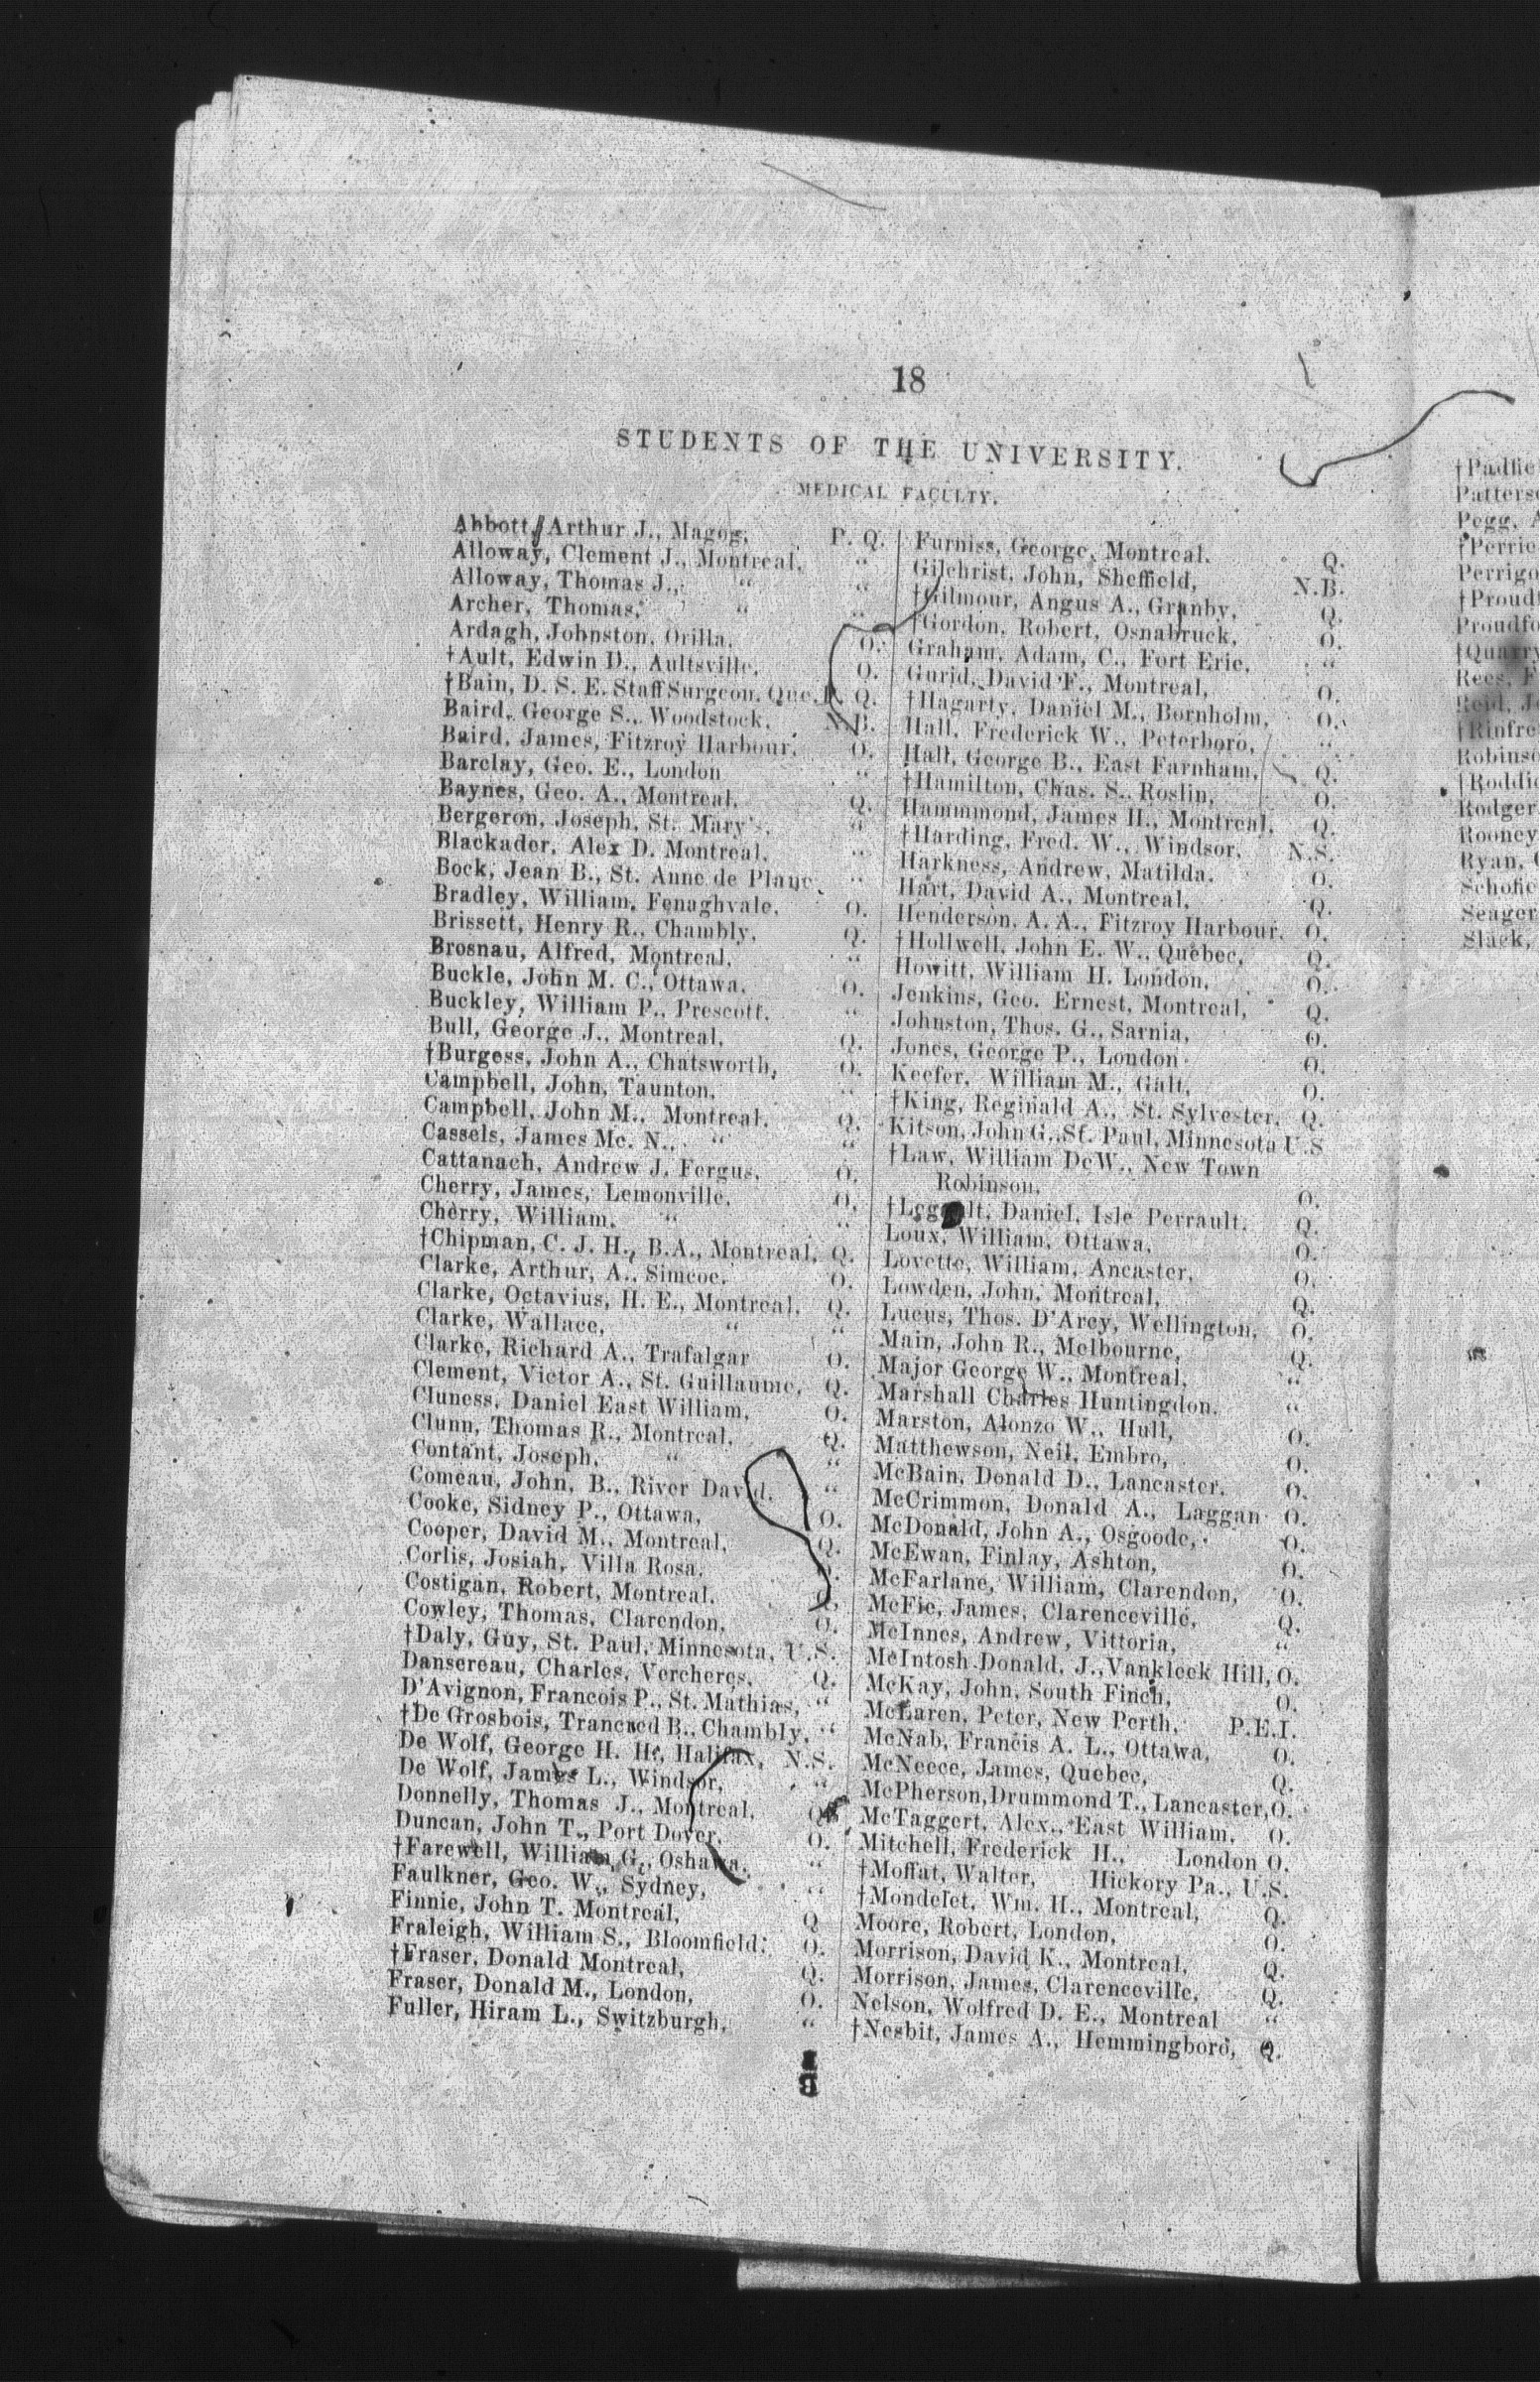 18
STUDENTS OF THE UNIVERSITY.
MEDICAL FACULTY.
Abbott, Arthur J., Magog, P. Q.
Alloway, Clement J., Montreal, "
Alloway, Thomas J., " "
Archer, Thomas, " "
Ardagh, Johnston, Orilla, O.
†Ault, Edwin D., Aultsville, O.
†Bain, D. S. E. Staff Surgeon, Que. P. Q.
Baird, George S., Woodstock, N.B.
Baird, James, Fitzroy Harbour, O.
Barclay, Geo. E., London "
Baynes, Geo. A., Montreal, Q.
Bergeron, Joseph, St. Mary's, "
Blackader, Alex D. Montreal, "
Bock, Jean B., St. Anne de Plane "
Bradley, William, Fenaghvale, O.
Brissett, Henry R., Chambly, Q.
Brosnau, Alfred, Montreal, "
Buckle, John M. C., Ottawa, O.
Buckley, William P., Prescott, "
Bull, George J., Montreal, Q.
†Burgess, John A., Chatsworth, O.
Campbell, John, Taunton, "
Campbell, John M., Montreal, Q.
Cassels, James Mc. N., " "
Cattanach, Andrew J. Fergus, O.
Cherry, James, Lemonville, O.
Cherry, William, " "
†Chipman, C. J. H., B.A., Montreal, Q.
Clarke, Arthur, A., Simcoe, O.
Clarke, Octavius, H. E., Montreal, Q.
Clarke, Wallace, " "
Clarke, Richard A., Trafalgar O.
Clement, Victor A., St. Guillaume, Q.
Cluness, Daniel East William, O.
Clunn, Thomas R., Montreal, Q.
Contant, Joseph, " "
Comeau, John, B., River David, "
Cooke, Sidney P., Ottawa, O.
Cooper, David M., Montreal, Q.
Corlis, Josiah, Villa Rosa,
Costigan, Robert, Montreal,
Cowley, Thomas, Clarendon, O.
†Daly, Guy, St. Paul, Minnesota, U.S.
Dansereau, Charles, Vercheres, Q.
D'Avignon, Francois P., St. Mathias, "
†De Grosbois, Trancned B., Chambly, "
De Wolf, George H. H., Halifax, N.S.
De Wolf, James L., Windsor, "
Donnelly, Thomas J., Montreal, Q.
Duncan, John T., Port Dover, O.
†Farewell, William G., Oshawa, "
Faulkner, Geo. W., Sydney, "
Finnie, John T. Montreal, Q
Fraleigh, William S., Bloomfield, O.
†Fraser, Donald Montreal, Q.
Fraser, Donald M., London, O.
Fuller, Hiram L., Switzburgh, "
Furniss, George, Montreal. Q.
Gilchrist, John, Sheffield, N.B.
†Gilmour, Angus A., Granby, Q.
†Gordon, Robert, Osnabruck, O.
Graham, Adam, C., Fort Erie, "
Gurid, David F., Montreal, Q.
†Hagarty, Daniel M., Bornholm, O.
Hall, Frederick W., Peterboro, "
Hall, George B., East Farnham, Q.
†Hamilton, Chas. S., Roslin, O.
Hammmond, James H., Montreal, Q.
†Harding, Fred. W., Windsor, N.S.
Harkness, Andrew, Matilda. O.
Hart, David A., Montreal, Q.
Henderson, A. A., Fitzroy Harbour, O.
†Hollwell, John E. W., Quebec, Q.
Howitt, William H. London, O.
Jenkins, Geo. Ernest, Montreal, Q.
Johnston, Thos. G., Sarnia, O.
Jones, George P., London O.
Keefer, William M., Galt, O.
†King, Reginald A., St. Sylvester, Q.
Kitson, John G., St. Paul, Minnesota U.S
†Law, William DeW., New Town
Robinson, O.
†Legault, Daniel, Isle Perrault. Q.
Loux, William, Ottawa, O.
Lovette, William, Ancaster, O.
Lowden, John, Montreal, Q.
Lucus, Thos. D'Arcy, Wellington, O.
Main, John R., Melbourne, Q.
Major George W., Montreal, "
Marshall Charles Huntingdon, "
Marston, Alonzo W., Hull, O.
Matthewson, Neil, Embro, O.
McBain, Donald D., Lancaster. O.
McCrimmon, Donald A., Laggan O.
McDonald, John A., Osgoode, O.
McEwan, Finlay, Ashton, O.
McFarlane, William, Clarendon, O.
McFie, James, Clarenceville, Q.
McInnes, Andrew, Vittoria, "
McIntosh Donald, J., Vankleek Hill, O.
McKay, John, South Finch, O.
McLaren, Peter, New Perth, P.E.I.
McNab, Francis A. L., Ottawa, O.
McNeece, James, Quebec, Q.
McPherson, Drummond T., Lancaster, O.
McTaggert, Alex., East William, O.
Mitchell, Frederick H., London O.
†Moffat, Walter, Hickory Pa., U.S.
†Mondelet, Wm. H., Montreal, Q.
Moore, Robert, London, O.
Morrison, David K., Montreal, Q.
Morrison, James, Clarenceville, Q.
Nelson, Wolfred D. E., Montreal "
†Nesbit, James A., Hemmingboro, Q.
Pegg,
Perrigo
Rodger
Rooney
Ryan,
Seager
Slack,